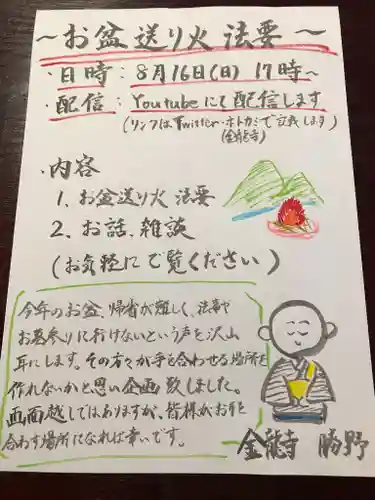 ～お盆送り火 法要～
・日時：8月16日(日) 17時～
・配信：Youtubeにて配信します
(リンクはTwitter・ホトカミで記載します)
(金龍寺)
・内容
1、お盆送り火 法要
2、お話、雑談
(お気軽にご覧ください)
今年のお盆、帰省が難しく、法要や
お墓参りに行けないという声を沢山
耳にします。その方々が手を合わせる場所を
作れないかと思い企画致しました。
画面越しではありますが、皆様がお手を
合わす場所になれば幸いです。
金龍寺 勝野